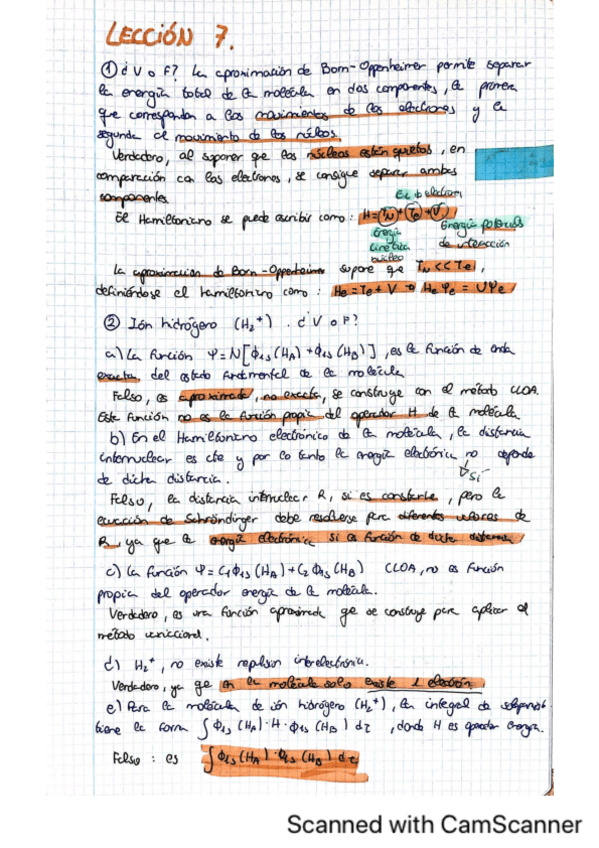 LECCIÓN 7.
① ¿V o F? La aproximación de Born-Oppenheimer permite separar
la energía total de la molécula en dos componentes, la primera
que corresponden a los movimientos de los electrones y la
segunda al movimiento de los núcleos.
Verdadero, al suponer que los núcleos están quietos, en
comparación con los electrones, se consigue separar ambas
componentes.
El Hamiltoniano se puede escribir como: H = (TN) + (Te) + (V)
Energía potencial
de interacción
Energía
cinética
núcleo
La aproximación de Born-Oppenheimer supone que TN << Te,
definiéndose el hamiltoniano como: He = Te + V → He Ψe = UΨe
② Ión hidrógeno (H₂⁺). ¿V o F?
a) La función Ψ = N[ϕ1s(HA) + ϕ1s(HB)], es la función de onda
exacta, del estado fundamental de la molécula.
Falso, es aproximada, no exacta, se construye con el método CLOA.
Esta función no es la función propia del operador H de la molécula
b) En el Hamiltoniano electrónico de la molécula, la distancia
internuclear es cte y por lo tanto la energía electrónica no depende
de dicha distancia.
sí
Falso, la distancia internuclear R, si es constante, pero la
ecuación de Schröndinger debe resolverse para diferentes valores de
R, ya que la energía electrónica si es función de dicha distancia
c) La función Ψ = C₁ϕ1s(HA) + C₂ϕ1s(HB) CLOA, no es función
propia del operador energía de la molécula.
Verdadero, es una función aproximada que se construye para aplicar el
método variacional.
d) H₂⁺, no existe repulsión interelectrónica.
Verdadero, ya que en la molécula solo existe 1 electrón.
e) Para la molécula de ión hidrógeno (H₂⁺), la integral de solapamiento
tiene la forma ∫ϕ1s(HA)·H·ϕ1s(HB) dτ, donde H es operador energía.
Falso: es ∫ϕ1s(HA)·ϕ1s(HB) dτ
Scanned with CamScanner